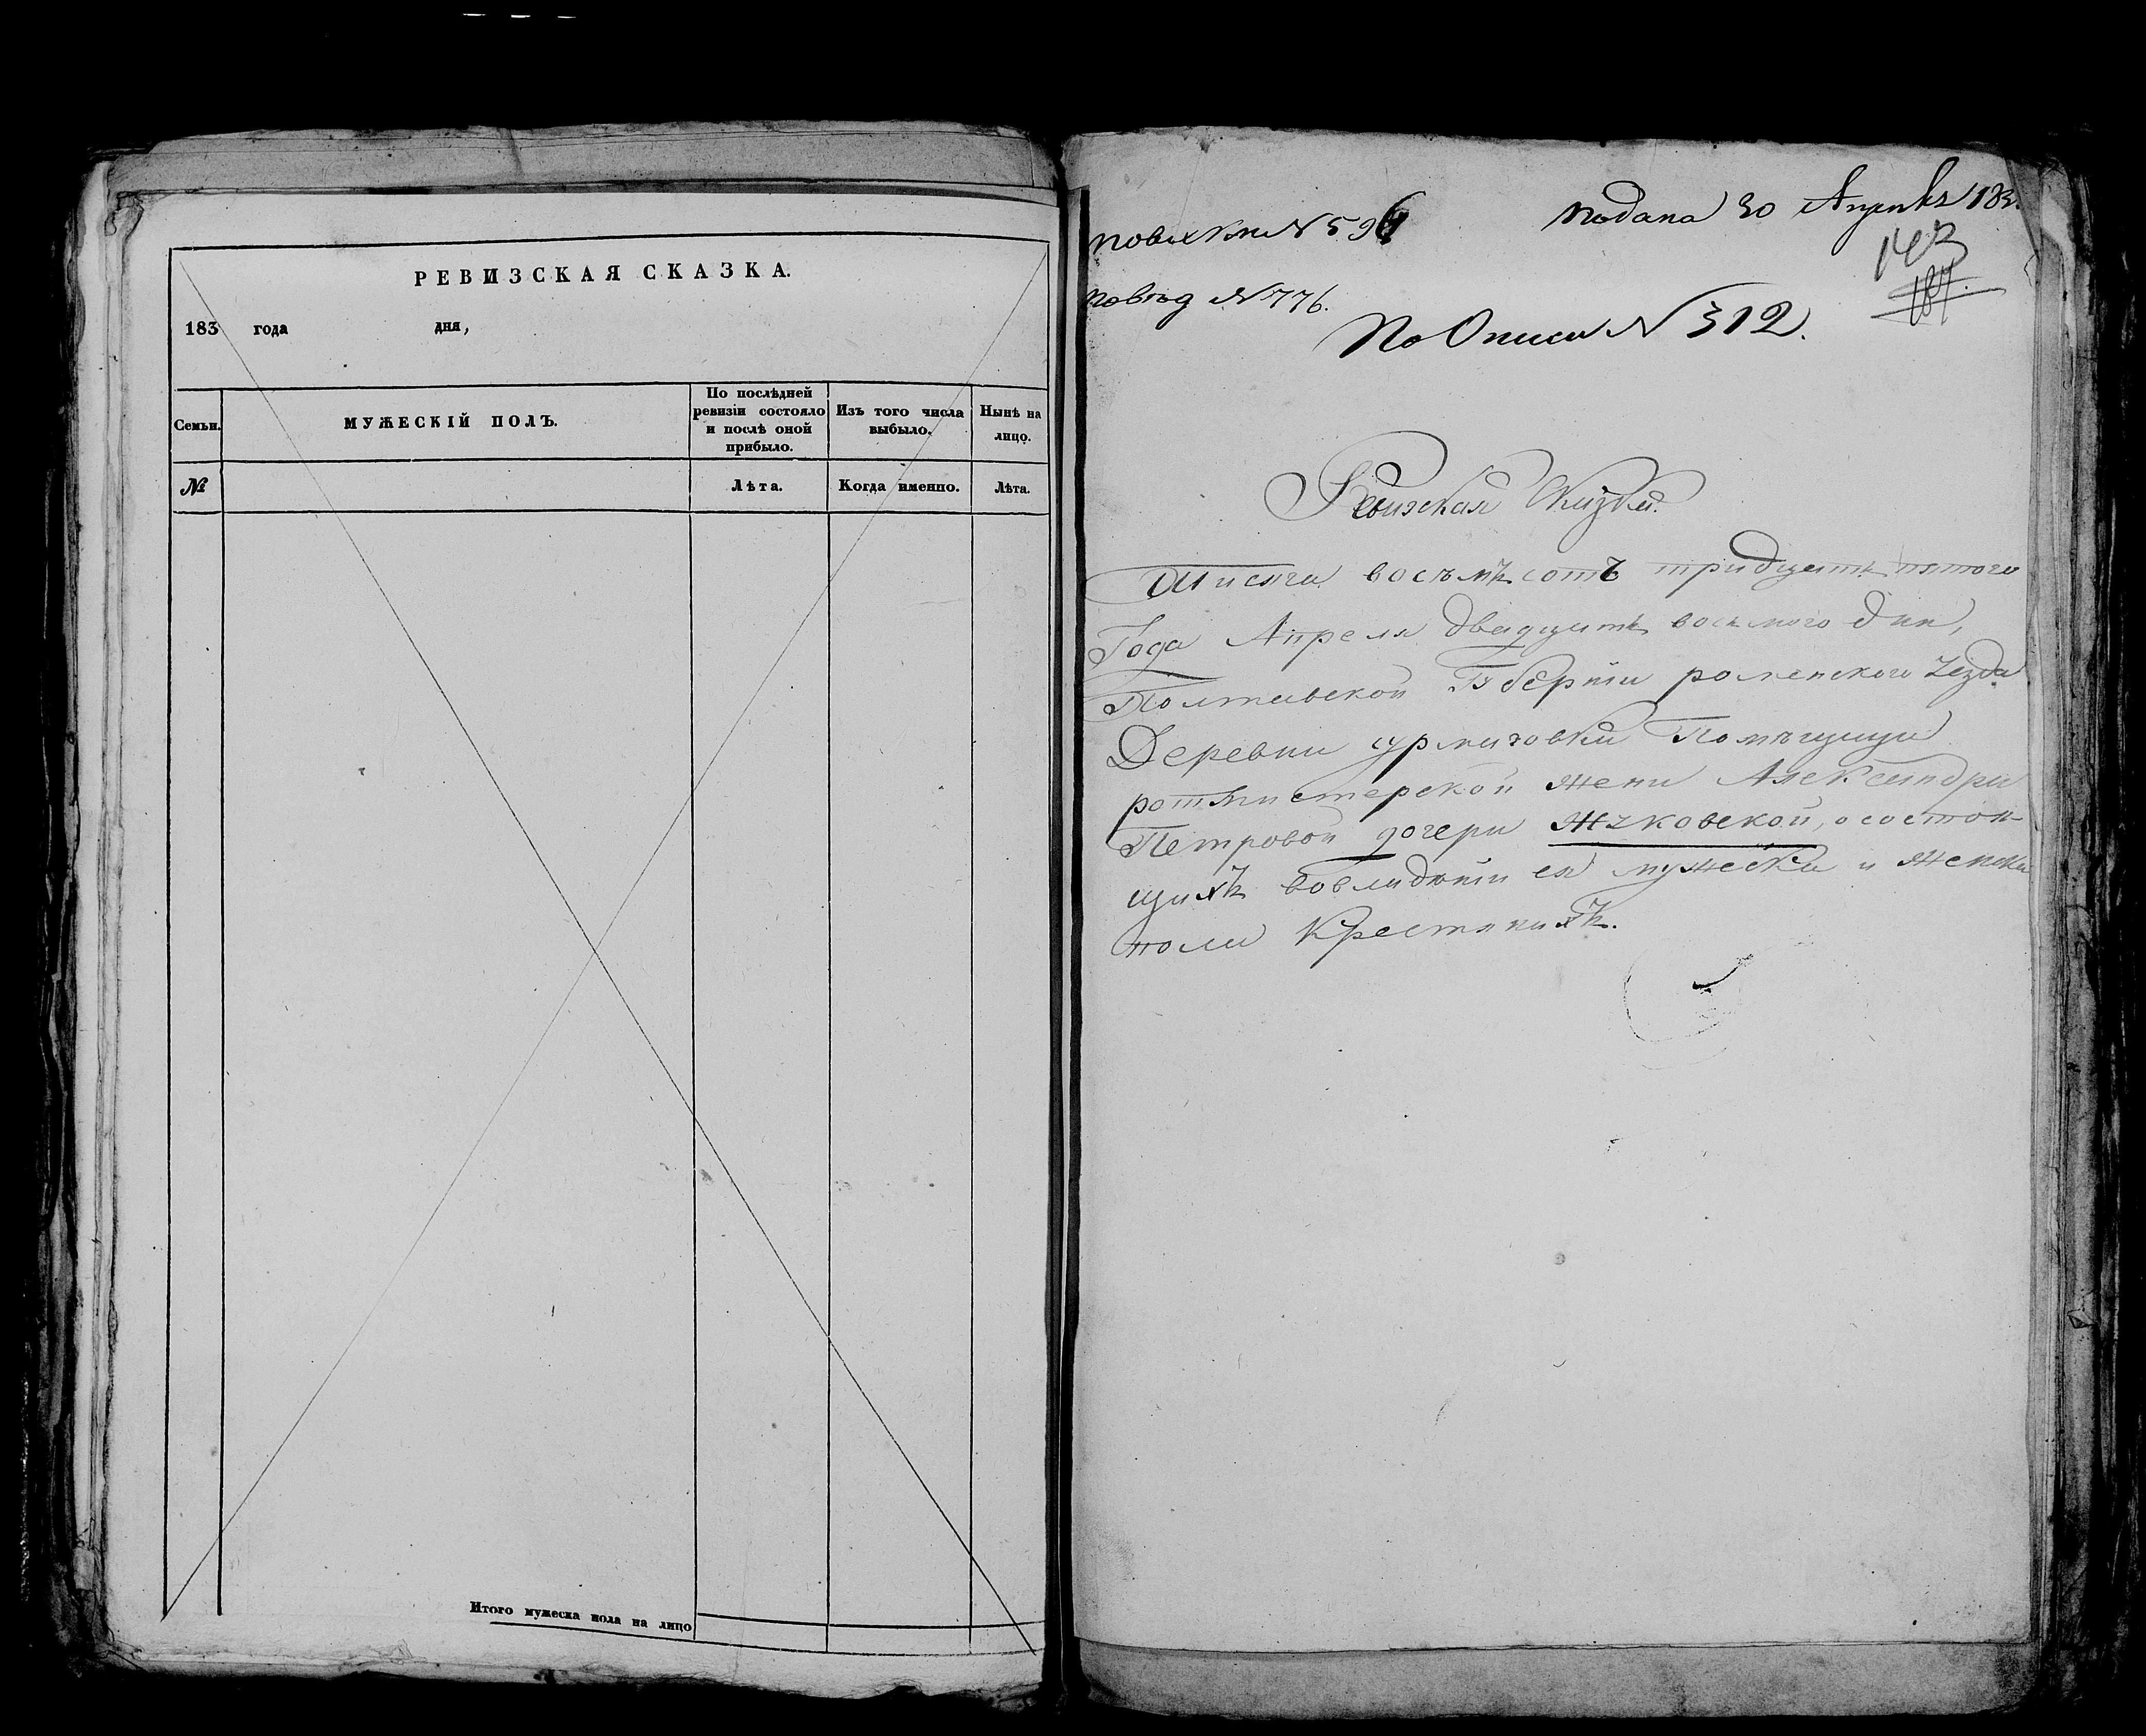 РЕВИЗСКАЯ СКАЗКА.
183 года дня,
Семьи. МУЖЕСКІЙ ПОЛЪ. По послѣдней ревизіи состояло и послѣ оной прибыло. Изъ того числа выбыло. Нынѣ на лицо.
№ Лѣта. Когда именно. Лѣта.
Итого мужеска пола на лицо
подана 30 Апреля 183
№ 596
№ 776.
По Описи № 312.
Ревизская Сказка.
Тисяча восъмъ сотъ тридцать пятого
Года Апреля двадцать восмого дня,
Полтавской Губерніи роменского уезда
Деревни Помѣщици
ротмистерской жени Александри
Петровой дочери Жуковской, о состоя
щихъ вовладѣніи ея мужеска и женска
поли Крестянихъ.